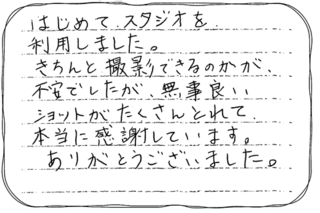 はじめて スタジオを
利用しました。
きちんと撮影できるのかが、
不安でしたが、無事良い
ショットがたくさんとれて
本当に感謝しています。
ありがとうございました。